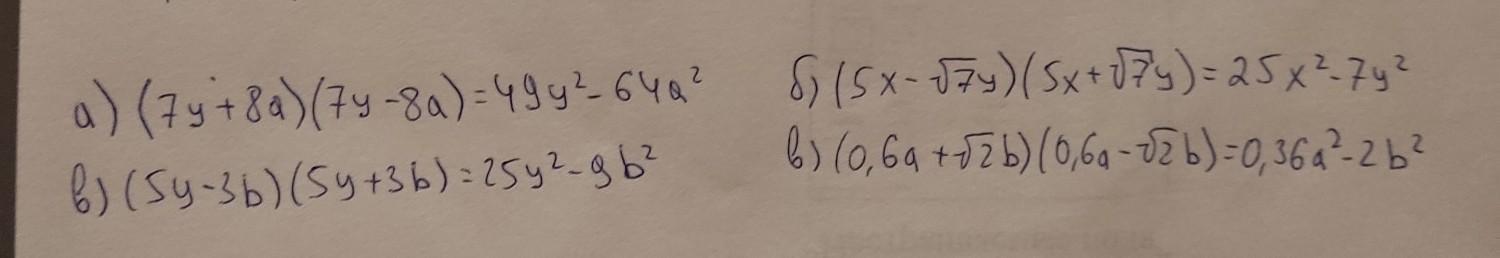 а) (7y+8a)(7y-8a)=49y²-64a²
б) (5x-√7y)(5x+√7y)=25x²-7y²
в) (5y-3b)(5y+3b)=25y²-9b²
в) (0,6a+√2b)(0,6a-√2b)=0,36a²-2b²